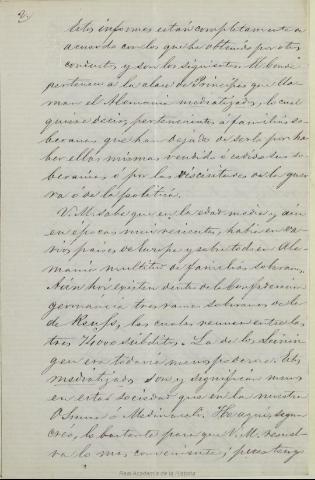 2)
Estos informes están completamente de
acuerdo con los que he obtenido por otro
conducto, y son los siguientes. M. Conde
pertenece a la clase de Príncipes que lla-
man el Alemania mediatizados, lo cual
quiere decir, pertenecientes á familias so-
beranas que han dejado de serlo por ha-
ber ellas mismas vendido ó cedido su so-
beranía, ó por las vicisitudes de la guer-
ra ó de la política.
V. M. sabe que en la edad media, y aún
en épocas muy recientes, había en va-
rios países de Europa y sobre todo en Ale-
mania multitud de familias soberanas.
Aún hoy existen dentro de la Confederación
germánica tres ramas soberanas de la
de Reuss, las cuales reunen entre las
tres 74000 súbditos. La de los Leinin-
gen era todavía menos poderosa. Estos
mediatizados son y significan menos
en esta sociedad que en la nuestra
Osuna ó Medinaceli. He aquí, según
creo, lo bastante para que V. M. resuel-
va lo mas conveniente; pero tengo
Real Academia de la Historia